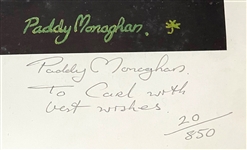 Paddy Monaghan.
Paddy Monaghan.
To Carl with
best wishes.
20/850